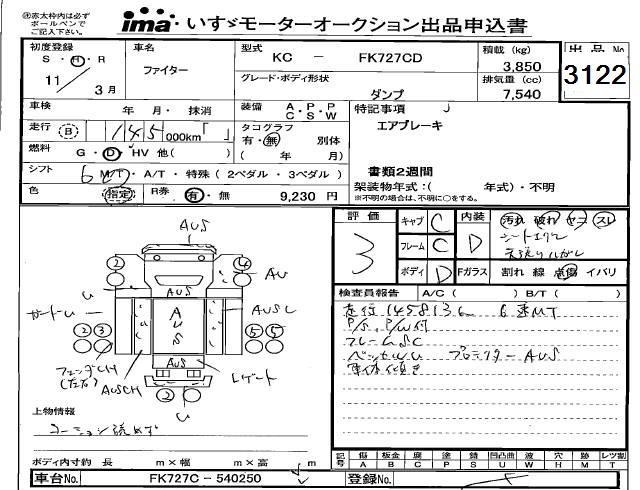 ※赤太枠内は必ず
ボールペンで
ご記入下さい。
ima いすゞモーターオークション出品申込書
初度登録
S・H・R
11 / 3月
車名
ファイター
型式
KC － FK727CD
グレード・ボディ形状
ダンプ
積載 (kg)
3,850
排気量 (cc)
7,540
出品No
3122
車検 年 月・ 抹消
装備 A・P・P
C・S・W
特記事項
エアブレーキ
走行 B 145 000km「 」
タコグラフ
有・無 別体
( 年 月)
燃料 G・D・HV 他( )
書類2週間
シフト 6 M/T・A/T・特殊 (2ペダル・3ペダル)
架装物年式:( 年式)・不明
※不明の場合は、不明に○をする。
色 (指定) R券 有・無 9,230 円
評価
3
キャブ C
フレーム C
ボディ D
内装 D
汚れ 破れ ヤニ スレ
シートエクレ
Fガラス 割れ 線 点傷 イバリ
検査員報告 A/C ( ) B/T ( )
走行145813km 6速MT
P/S, P/W付
フレームSC
ベッセルU
AUS
車体傾き
AUS
2
4
U
AU
AUS
ガードU
AUS
AUSC
2 3
5 5
フェンダCH
(左右)
AUSCH
AUS
Lゲート
2
U
上物情報
コーション読めず
ボディ内寸約 長 m×幅 m×高 m
記号 傷A 板金B 腐C 塗P 錆S 凹凸曲U 波W 穴H 跡M レツ割T
車台No. FK727C－540250
登録No.